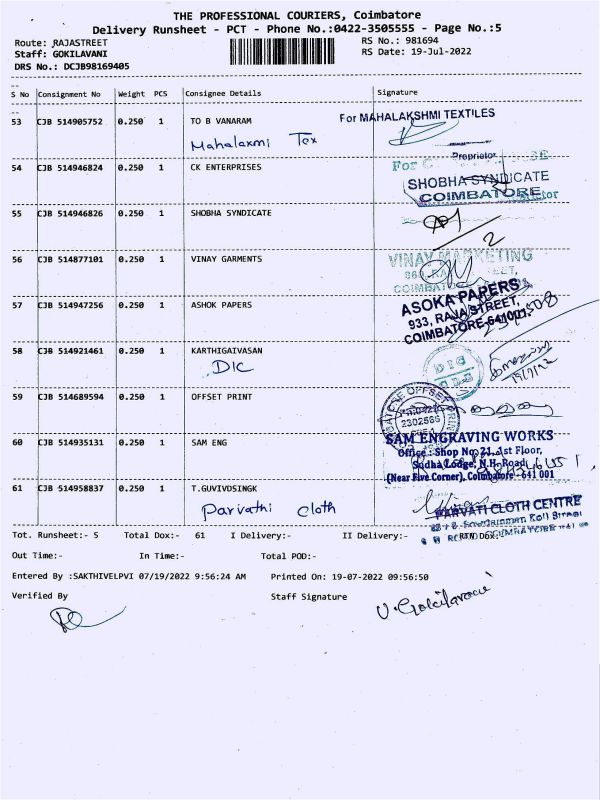 THE PROFESSIONAL COURIERS, Coimbatore
Delivery Runsheet - PCT - Phone No.:0422-3505555 - Page No.:5
Route: RAJASTREET
RS No.: 981694
Staff: GOKILAVANI
RS Date: 19-Jul-2022
DRS No.: DCJB98169405
S No Consignment No Weight PCS Consignee Details Signature
53 CJB 514905752 0.250 1 TO B VANARAM
For MAHALAKSHMI TEXTILES
Mahalaxmi Tex
Proprietor
54 CJB 514946824 0.250 1 CK ENTERPRISES
For C
SHOBHA SYNDICATE
COIMBATORE
55 CJB 514946826 0.250 1 SHOBHA SYNDICATE
56 CJB 514877101 0.250 1 VINAY GARMENTS
VINAY MARKETING
57 CJB 514947256 0.250 1 ASHOK PAPERS
ASOKA PAPERS
933, RAJA STREET,
COIMBATORE-641001.
58 CJB 514921461 0.250 1 KARTHIGAIVASAN
DIC
DIC
19/7/22
59 CJB 514689594 0.250 1 OFFSET PRINT
2302566
60 CJB 514935131 0.250 1 SAM ENG
SAM ENGRAVING WORKS
Office : Shop No.21, 1st Floor,
Sudha Lodge, N.H. Road,
(Near Five Corner), Coimbatore - 641 001
61 CJB 514958837 0.250 1 T.GUVIVDSINGK
Parvathi cloth
PARVATI CLOTH CENTRE
Tot. Runsheet:- 5 Total Dox:- 61 I Delivery:- II Delivery:- RTN DOX:-
Out Time:- In Time:- Total POD:-
Entered By :SAKTHIVELPVI 07/19/2022 9:56:24 AM Printed On: 19-07-2022 09:56:50
Verified By Staff Signature
V. Gokilavani